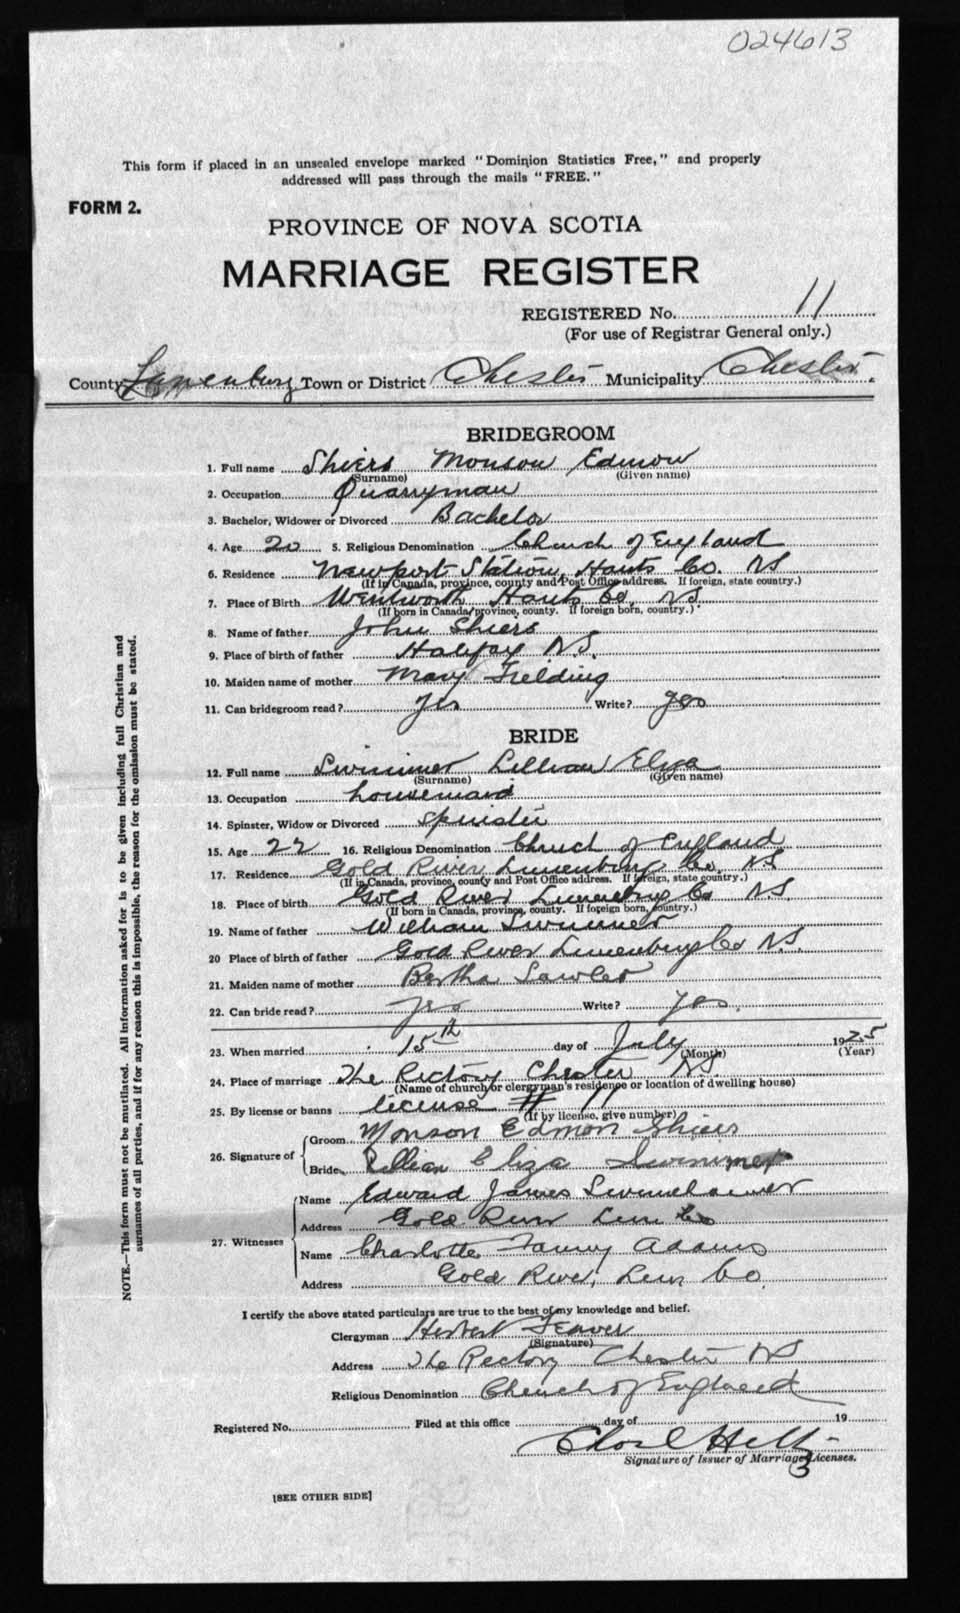 024613
This form if placed in an unsealed envelope marked "Dominion Statistics Free," and properly
addressed will pass through the mails "FREE."
FORM 2.
PROVINCE OF NOVA SCOTIA
MARRIAGE REGISTER
REGISTERED No. 11
(For use of Registrar General only.)
County Lunenburg Town or District Chester Municipality Chester.
BRIDEGROOM
1. Full name Shiers Monson Edmon
(Surname) (Given name)
2. Occupation Quarryman
3. Bachelor, Widower or Divorced Bachelor
4. Age 20 5. Religious Denomination Church of England
6. Residence Newport Station, Hants Co. NS
(If in Canada, province, county and Post Office address. If foreign, state country.)
7. Place of Birth Wentworth Hants Co. NS.
(If born in Canada, province, county. If foreign born, country.)
8. Name of father John Shiers
9. Place of birth of father Halifax NS.
10. Maiden name of mother Mary Fielding
11. Can bridegroom read? yes Write? yes
BRIDE
12. Full name Swinimer Lillian Eliza
(Surname) (Given name)
13. Occupation housemaid
14. Spinster, Widow or Divorced Spinster
15. Age 22 16. Religious Denomination Church of England
17. Residence Gold River, Lunenburg Co. NS
(If in Canada, province, county and Post Office address. If foreign, state country.)
18. Place of birth Gold River Lunenburg Co NS.
(If born in Canada, province, county. If foreign born, country.)
19. Name of father William Swinimer
20 Place of birth of father Gold River Lunenburg Co NS.
21. Maiden name of mother Bertha Lawler
22. Can bride read? yes Write? yes.
23. When married 15th day of July 1925
(Month) (Year)
24. Place of marriage The Rectory Chester NS.
(Name of church or clergyman's residence or location of dwelling house)
25. By license or banns license # 11
(If by license, give number)
26. Signature of Groom Monson Edmon Shiers
Bride Lillian Eliza Swinimer
27. Witnesses Name Edward James
Address Gold River Lun Co
Name Charlotte Fanny Adams
Address Gold River, Lun Co.
I certify the above stated particulars are true to the best of my knowledge and belief.
Clergyman Herbert Feaver
(Signature)
Address The Rectory Chester NS
Religious Denomination Church of England
Registered No. Filed at this office day of 19
Signature of Issuer of Marriage Licenses.
3
[SEE OTHER SIDE]
NOTE.—This form must not be mutilated. All information asked for is to be given including full Christian and
surnames of all parties, and if for any reason this is impossible, the reason for the omission must be stated.